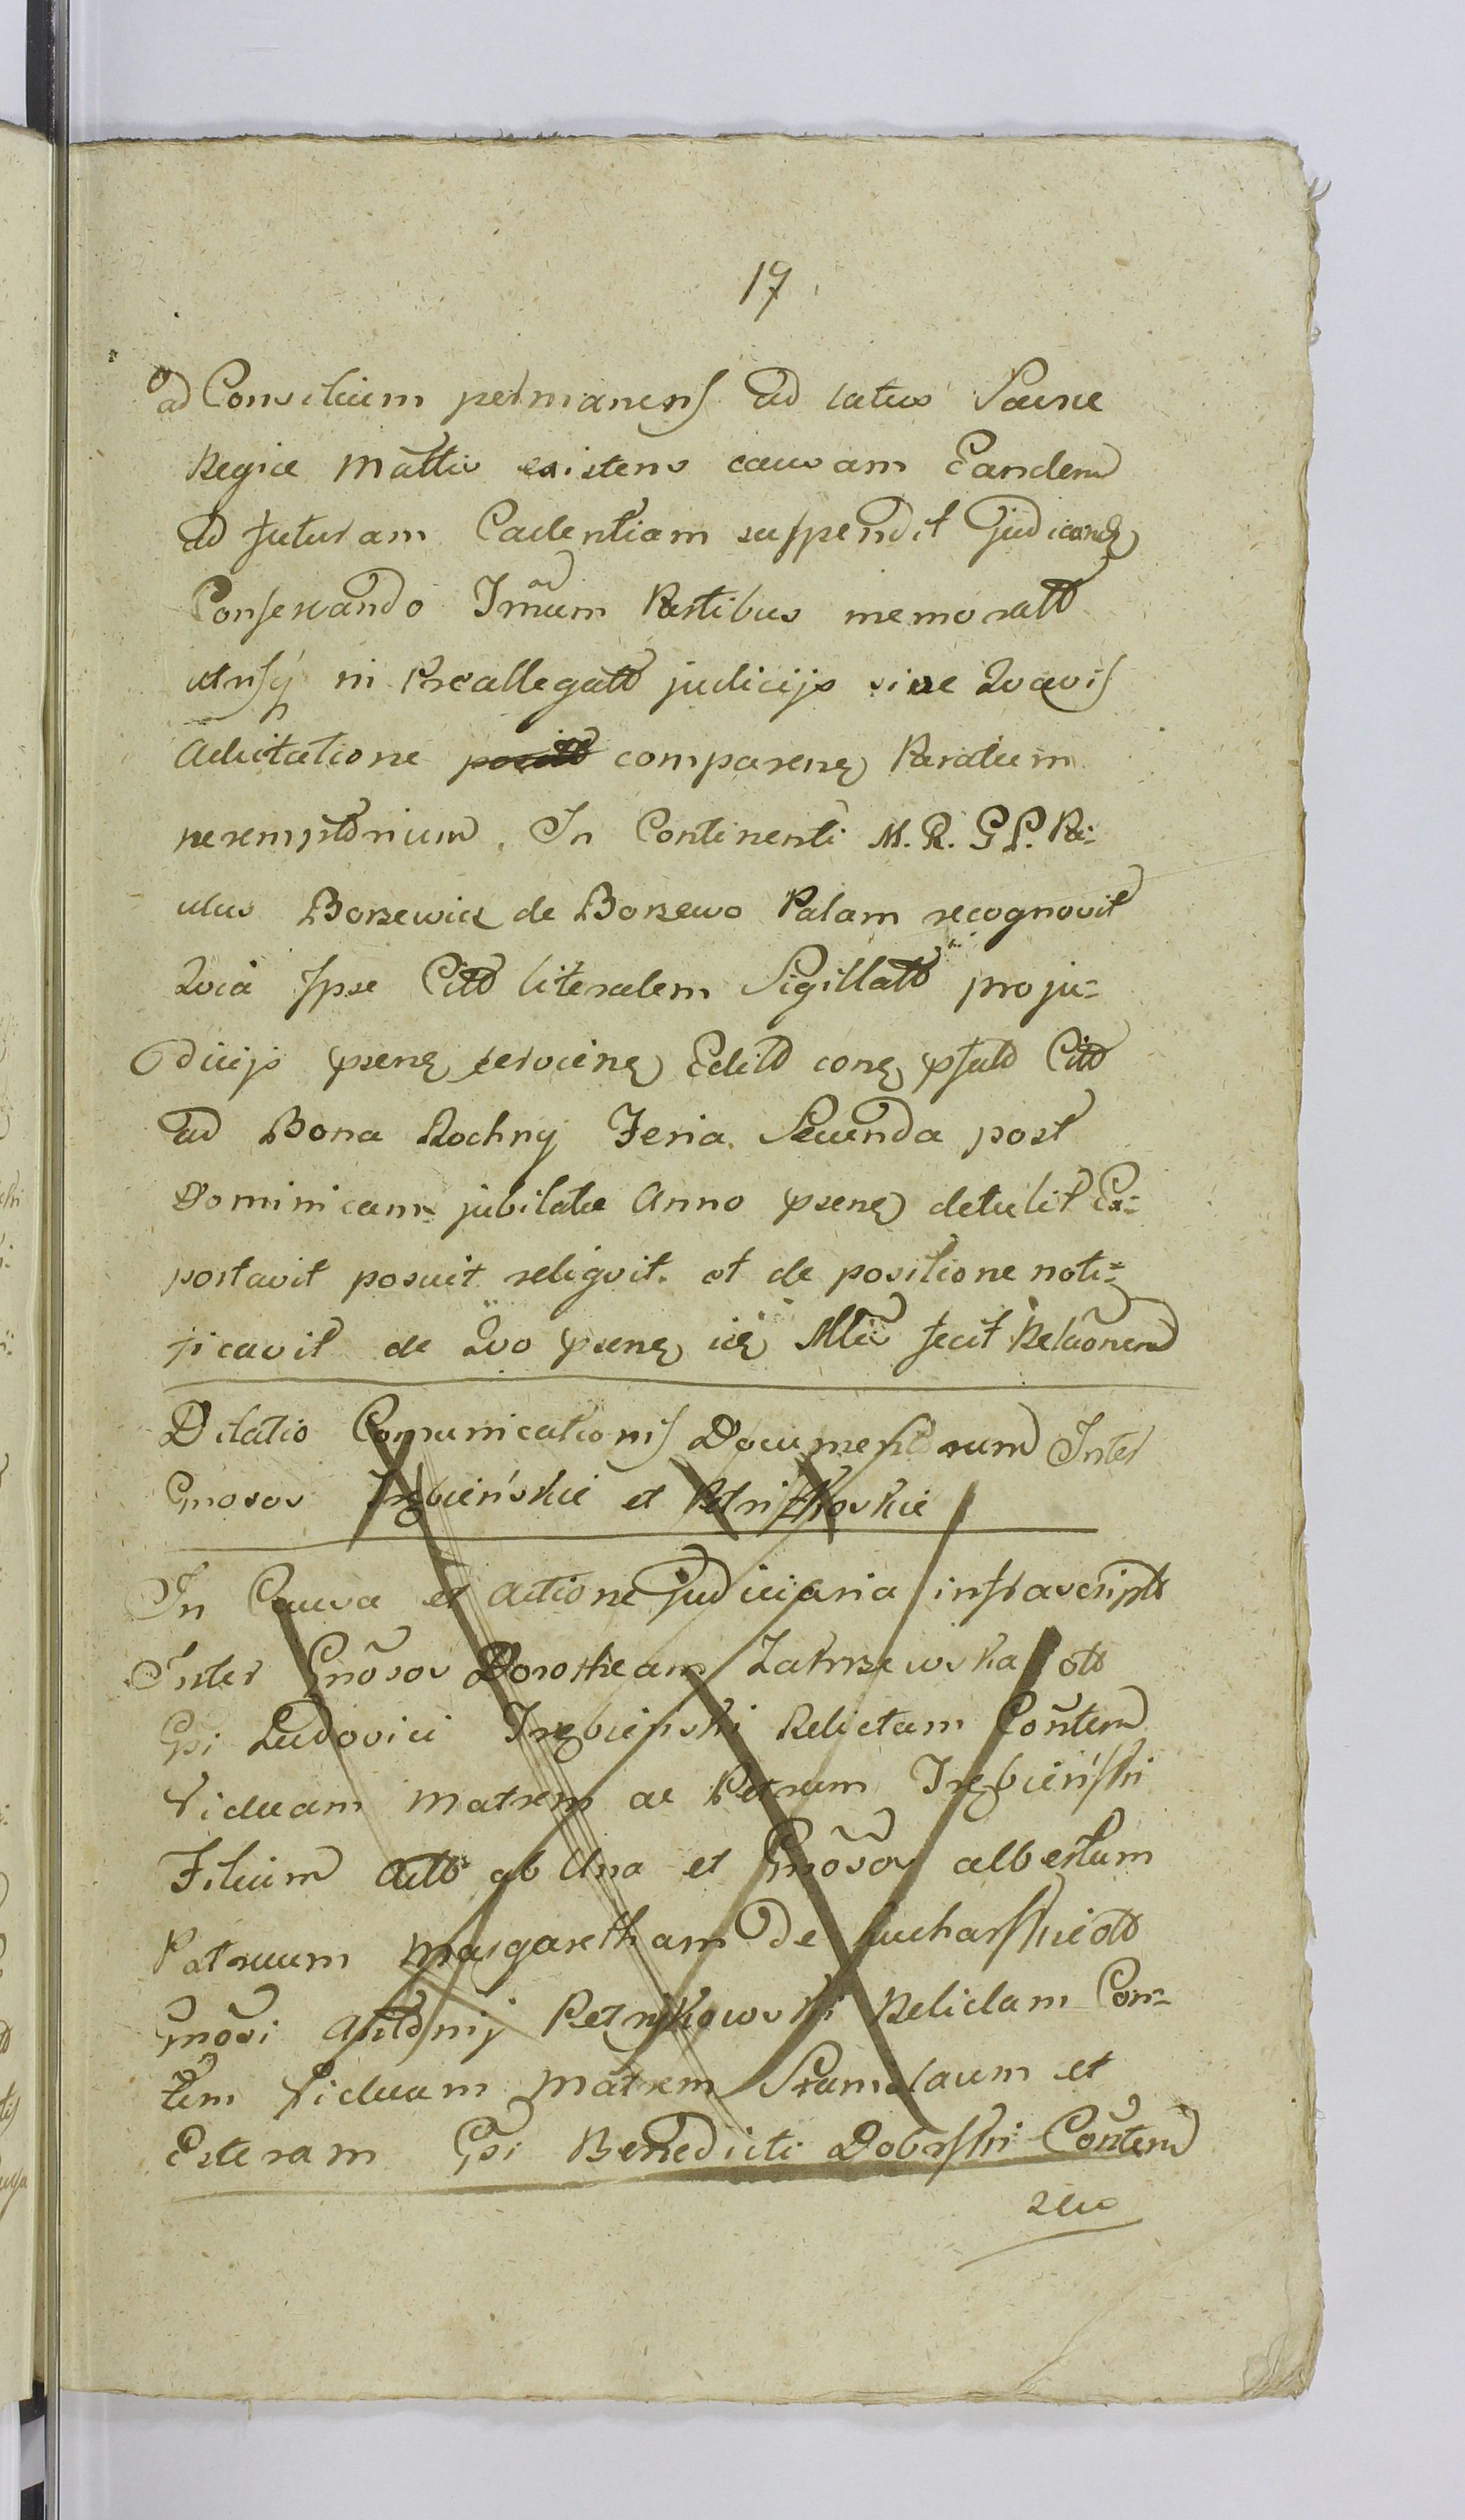 17
ad Consilium permanens ad latus Sacrae
Regiae Mattis existens causam Eandem
ad futuram Cadentiam suspendit judicandą
Conservando Tmum Partibus memoratt
utrisq in Praeallegatt judicijs sine Quavis
Adcitatione comparenę Paratum
peremptorium. In Continenti M. R. G P. Pa=
ulus Borzewicz de Borzewo Palam recognovit
Quia Ipse Citt literalem Sigillatt pro ju=
dicijs psenę Edittt conę psatt Citt
ad Bona Rochny Feria Secunda post
Dominicam jubilatae Anno psenę detulit Ex=
portavit posuit reliqvit. et de positione noti=
ficavit de Quo psenę fecit Relaonem
Dilatio Comunicationis Documentorum Inter
Gnosos Trębieńskie et Petrykowskie
In Causa et Actione Judiciaria infrascriptt
Inter Gnosos Dorotheam Zakrzewska ott
Gsi Ludovici Trębieński Relictam Contem
Viduam Matrem ac Petrum Trębieński
Filium Actt ab Una et Gnosos Albertum
Patruum Margaretham De Sucharskie ott
Gnosi Antonij Petrykowski Relictam Con=
tem Viduam Matrem Stanislaum et
Esteram Gsi Benedicti Dobrski Contem